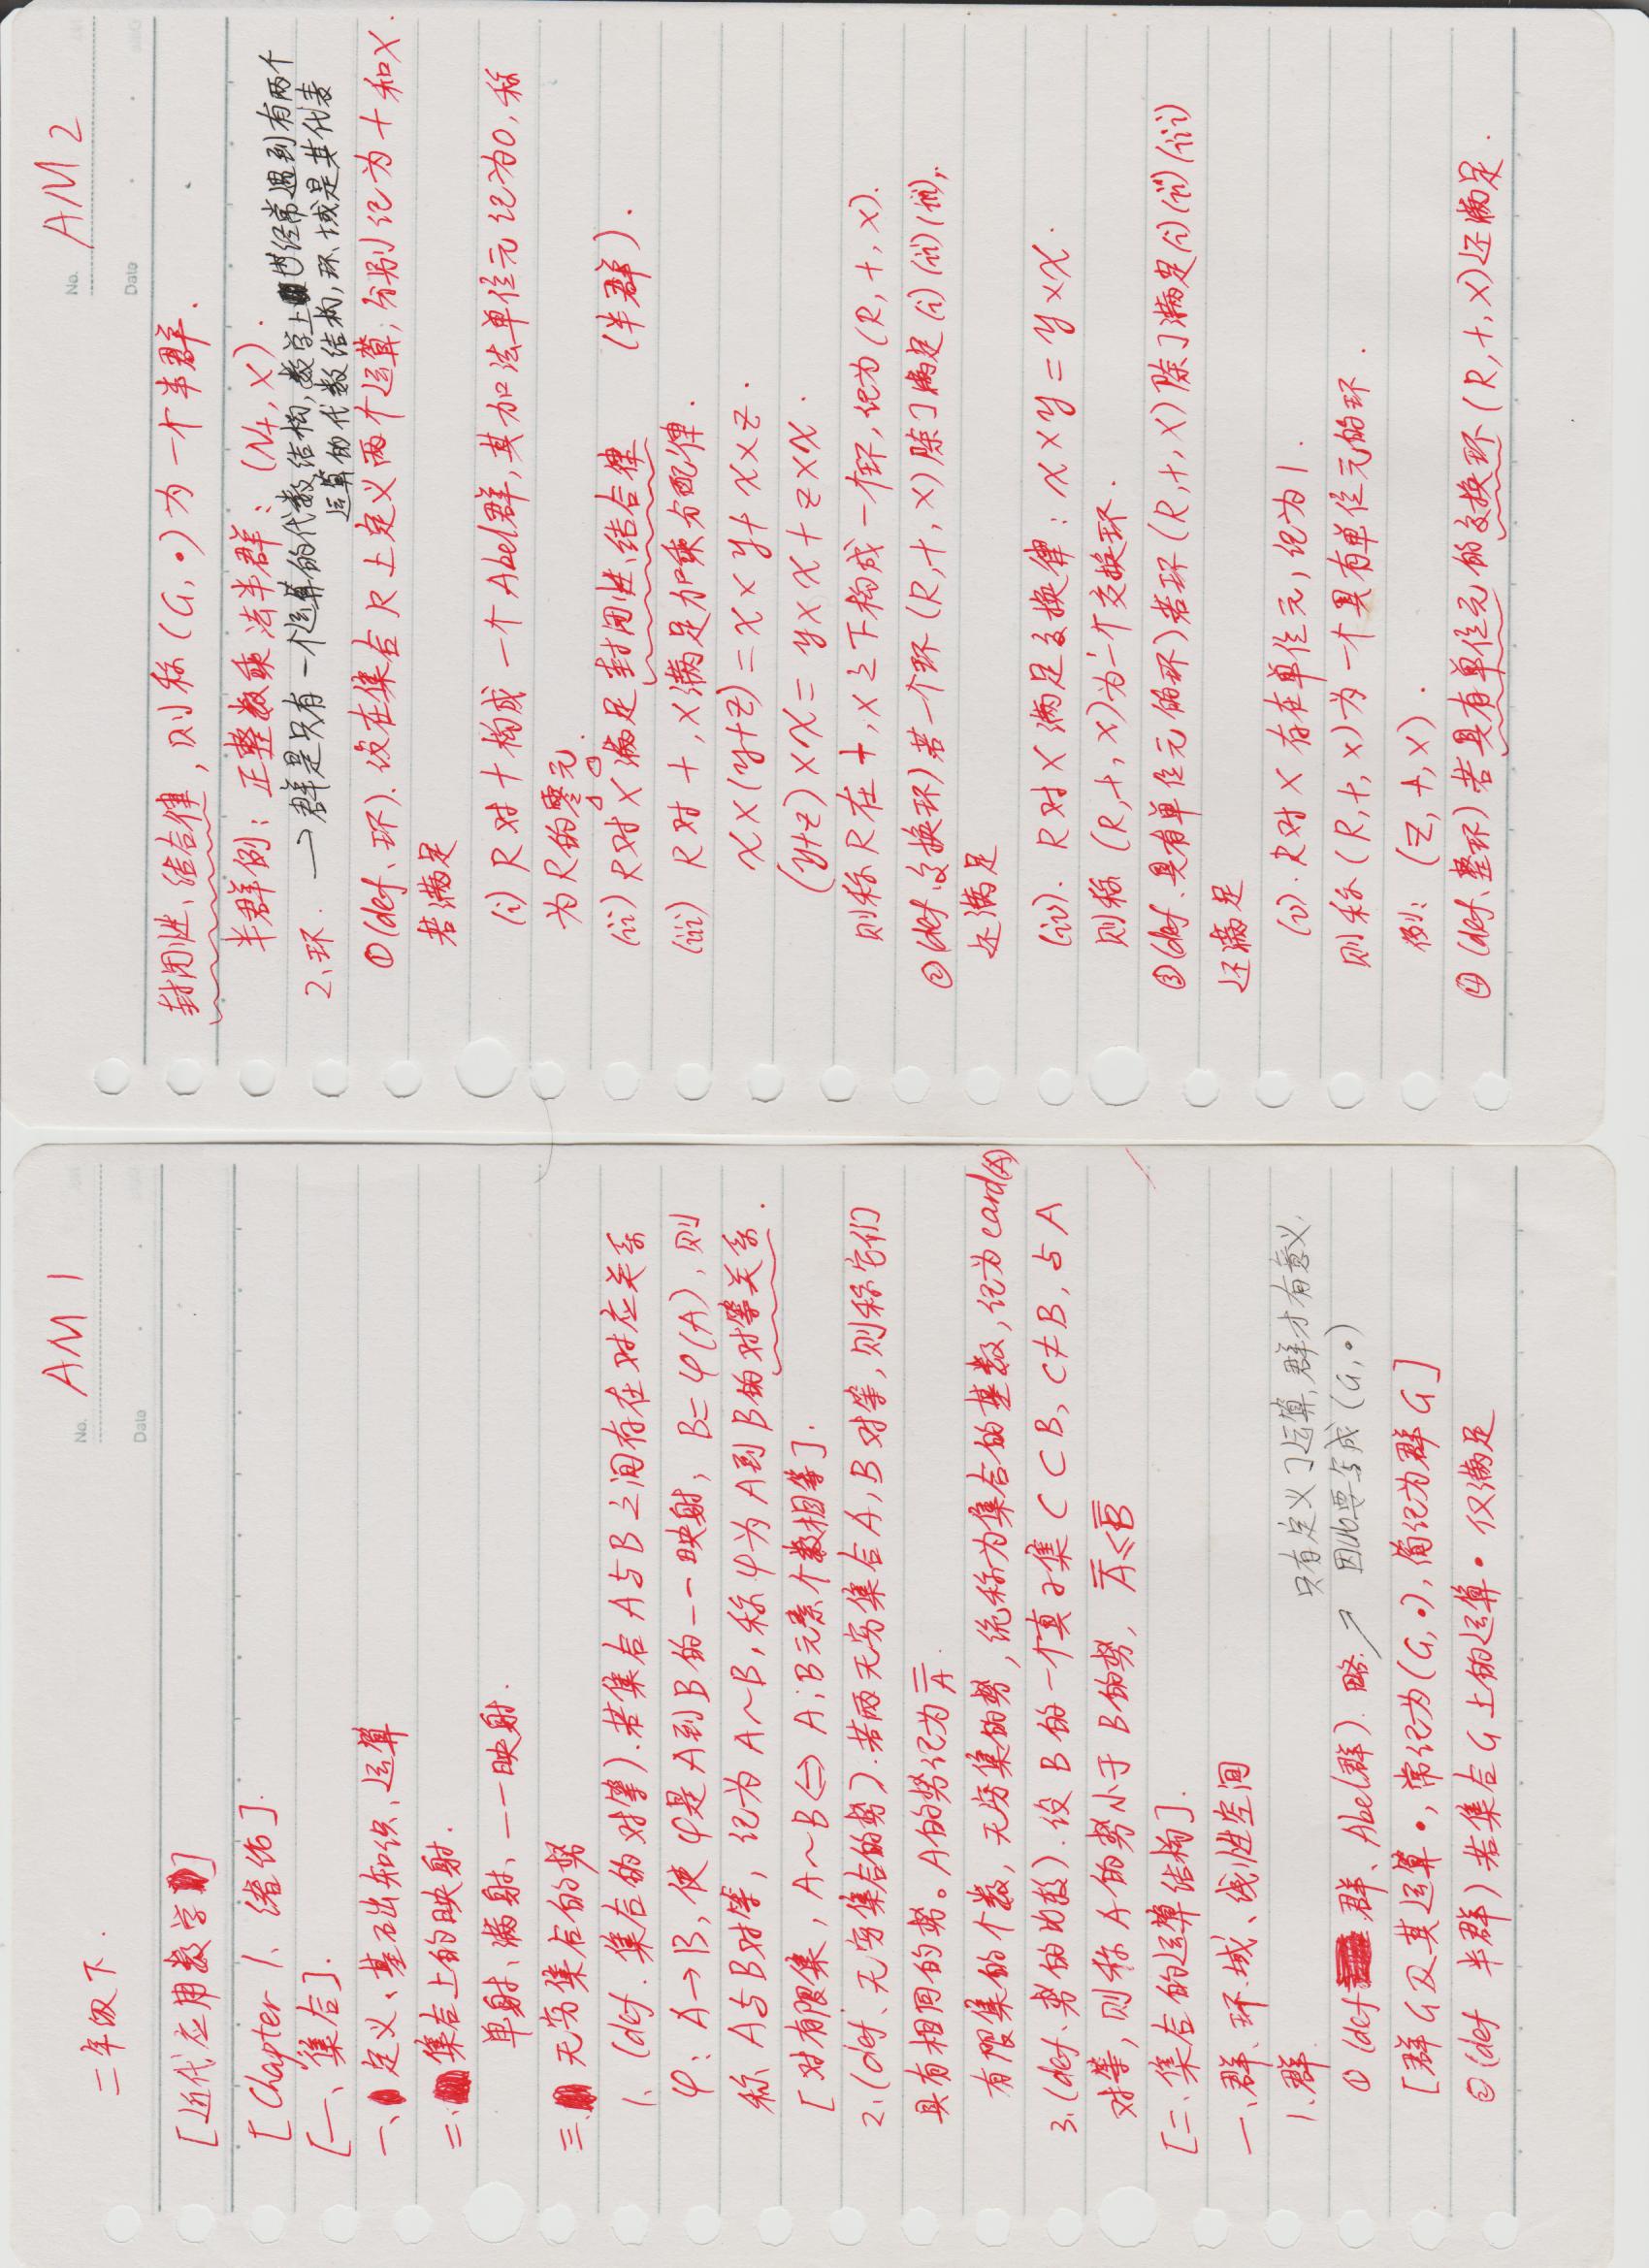 二年级下.
No. AM 1
Date
[近代应用数学]
[Chapter 1、绪论].
[一、集合].
一、定义、基础知识、运算
二、集合上的映射.
单射、满射、一一映射.
三、无穷集合的势
1、(def. 集合的对等).若集合A与B之间存在对应关系
φ: A→B, 使φ是A到B的一一映射, B=φ(A), 则
称A与B对等, 记为A~B, 称φ为A到B的对等关系.
[对有限集, A~B⇔A;B元素个数相等].
2、(def、无穷集合的势).若两无穷集合A,B对等,则称它们
具有相同的势。A的势记为A̿.
有限集的个数, 无穷集的势, 统称为集合的基数, 记为card(A)
3、(def、势的比较).设B的一个真子集C⊂B, C≠B, 与A
对等, 则称A的势小于B的势, A̿≤B̿
[二、集合的运算结构].
一、群、环、域、线性空间
1、群.
只有定义了运算,群才有意义,
因此要写成(G,•)
①(def 群、Abel群). 略. ↗
[群G及其运算•,常记为(G,•),简记为群G]
②(def 半群)若集合G上的运算•仅满足
No. AM 2
Date
封闭性、结合律,则称(G,•)为一个半群.
半群例: 正整数乘法半群: (N+,×).
2、环. →群是只有一个运算的代数结构,数学上也经常遇到有两个
运算的代数结构,环、域是其代表
①(def、环).设在集合R上定义两个运算,分别记为+和×.
若满足
(i) R对+构成一个Abel群,其加法单位元记为0,称
为R的零元.
(ii) R对×满足封闭性、结合律 (半群).
(iii) R对+,×满足加乘分配律.
x×(y+z)=x×y+x×z.
(y+z)×x=y×x+z×x.
则称R在+,×之下构成一个环,记为(R,+,×).
②(def、交换环)若一个环(R,+,×)除了满足(i)(ii)(iii),
还满足
(iv). R对×满足交换律: x×y=y×x.
则称(R,+,×)为一个交换环.
③(def、具有单位元的环)若环(R,+,×)除了满足(i)(ii)(iii)
还满足
(v). R对×存在单位元,记为1.
则称(R,+,×)为一个具有单位元的环.
例: (Z,+,×).
④(def、整环)若具有单位元的交换环(R,+,×)还满足.